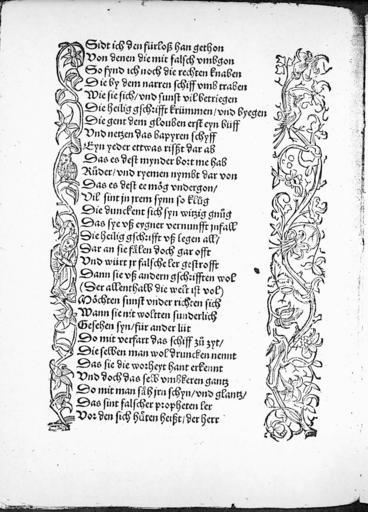 Sidt ich den fürloß han gethon
Von denen die mit falsch vmbgon
So fynd ich noch die rechten knaben
Die by dem narren schiff vmb traben
Wie sie sich/ vnd sunst vil betriegen
Die heilig gschrifft krümmen/ vnd byegen
Die gent dem glouben erst eyn büff
Vnd netzen das bapyren schyff
Eyn yeder ettwas rißt dar ab
Das es dest mynder bort me hab
Rüder/ vnd ryemen nymbt dar von
Das es dest ee mög vndergon/
Vil sint in jrem synn so klůg
Die dunckent sich syn witzig gnůg
Das sye vß eygner vernunfft jnfall
Die heilig gschrifft vß legen all/
Dar an sie fälen doch gar offt
Vnd würt jr falsche ler gestrofft
Dann sie vß andern gschrifften wol
(Der allenthalb die welt ist vol)
Möchten sunst vnder richten sich
Wann sie nit woltten sunderlich
Gesehen syn/ für ander lüt
Do mit verfart das schiff zů zyt/
Die selben man wol druncken nennt
Das sie die worheyt hant erkennt
Vnd doch das selb vmbkeren gantz
Do mit man säh jrn schyn/ vnd glantz/
Das sint falscher propheten ler
Vor den sich hůten heißt/ der herr